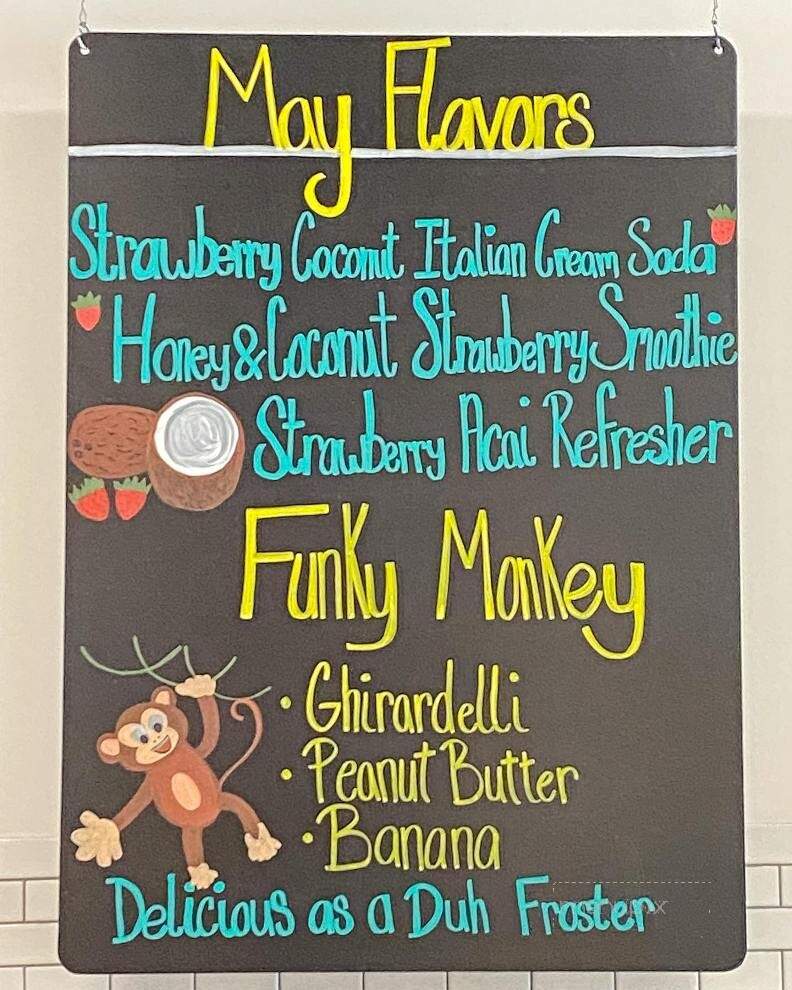 May Flavors
Strawberry Coconut Italian Cream Soda
Honey & Coconut Strawberry Smoothie
Strawberry Acai Refresher
Funky Monkey
• Ghirardelli
• Peanut Butter
• Banana
Delicious as a Duh Froster